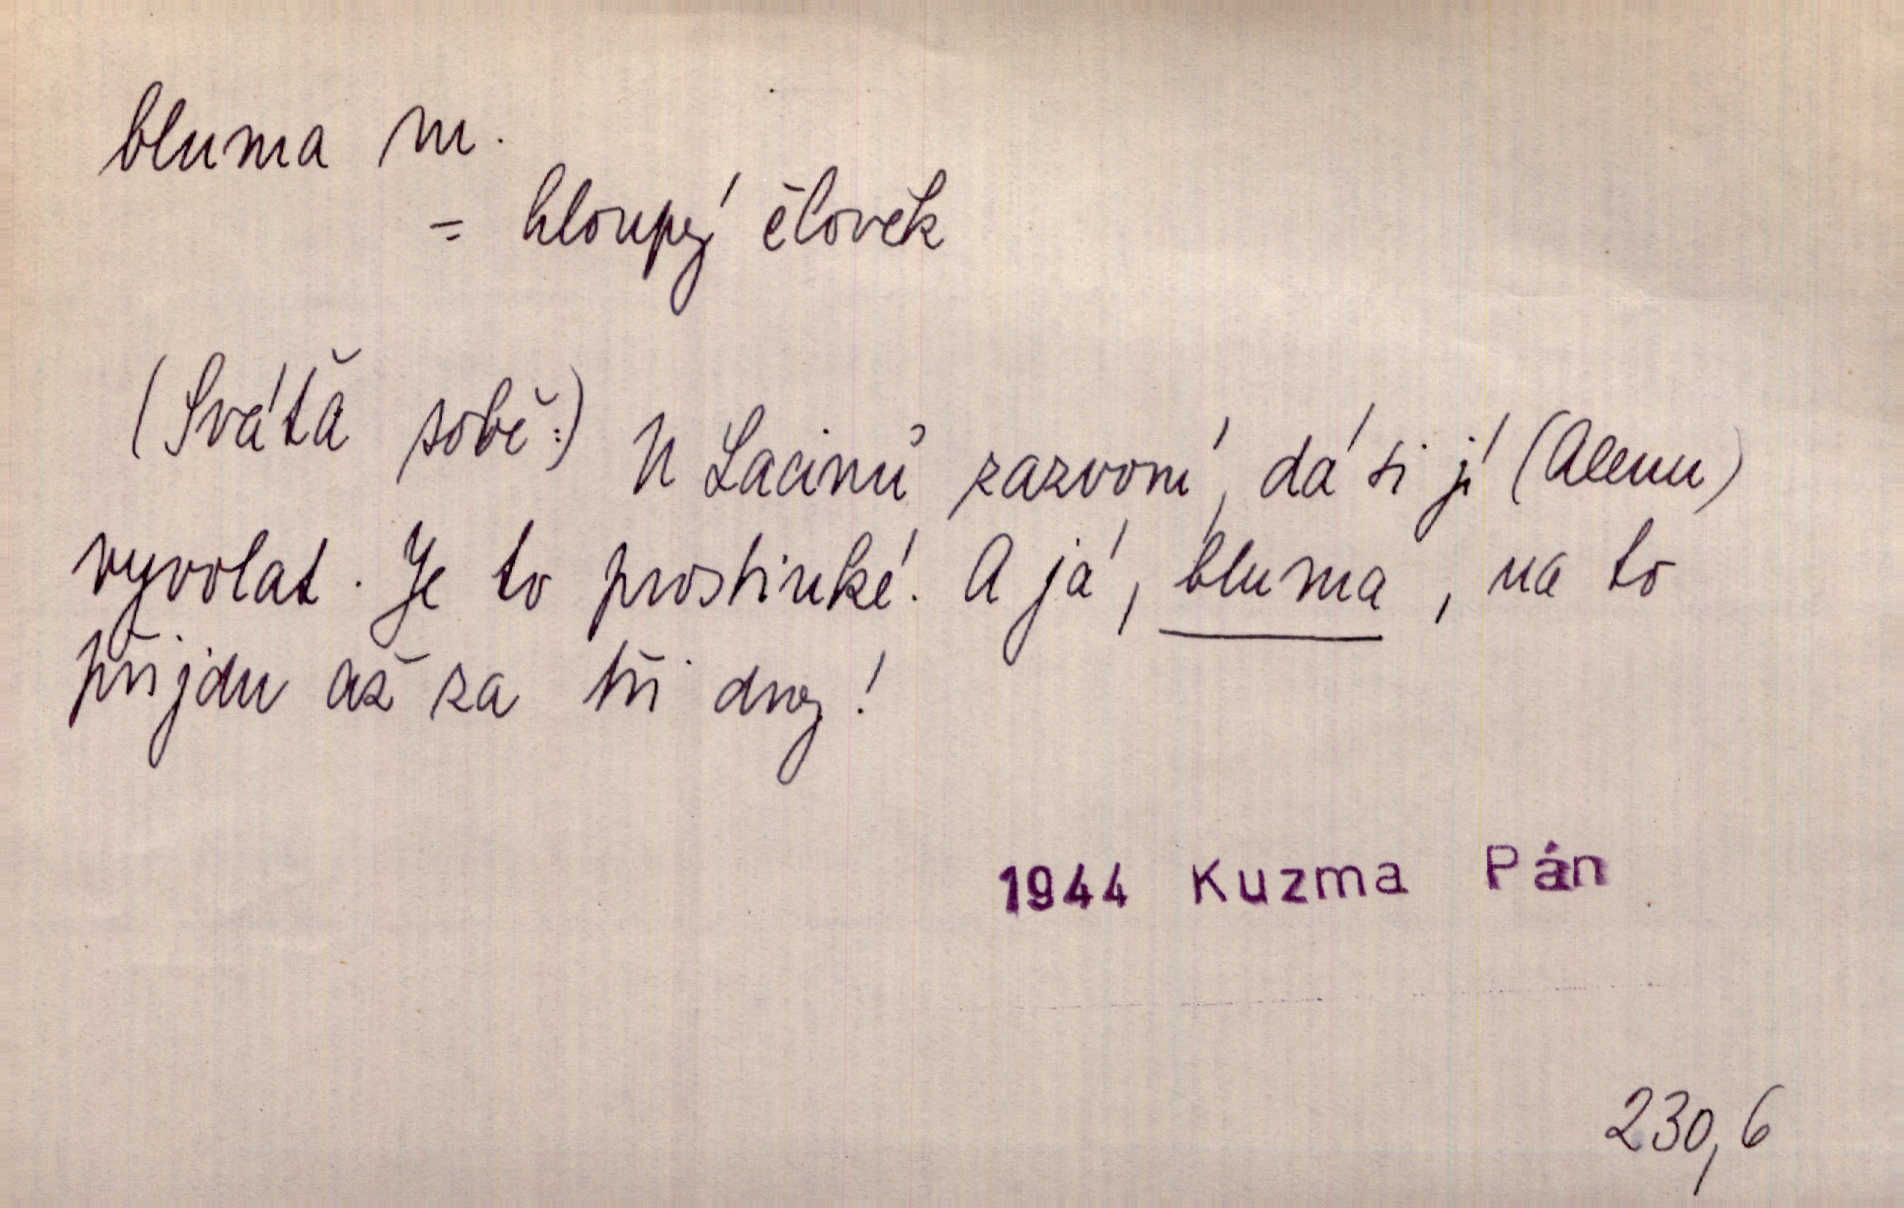 bluma m.
= hloupý člověk
(Sváťa sobě:) U Lacinů zazvoní, dá si jí (Alenu)
vyvolat. Je to prostinké. A já, bluma, na to
přijdu až za tři dny!
1944 Kuzma Pán
230,6